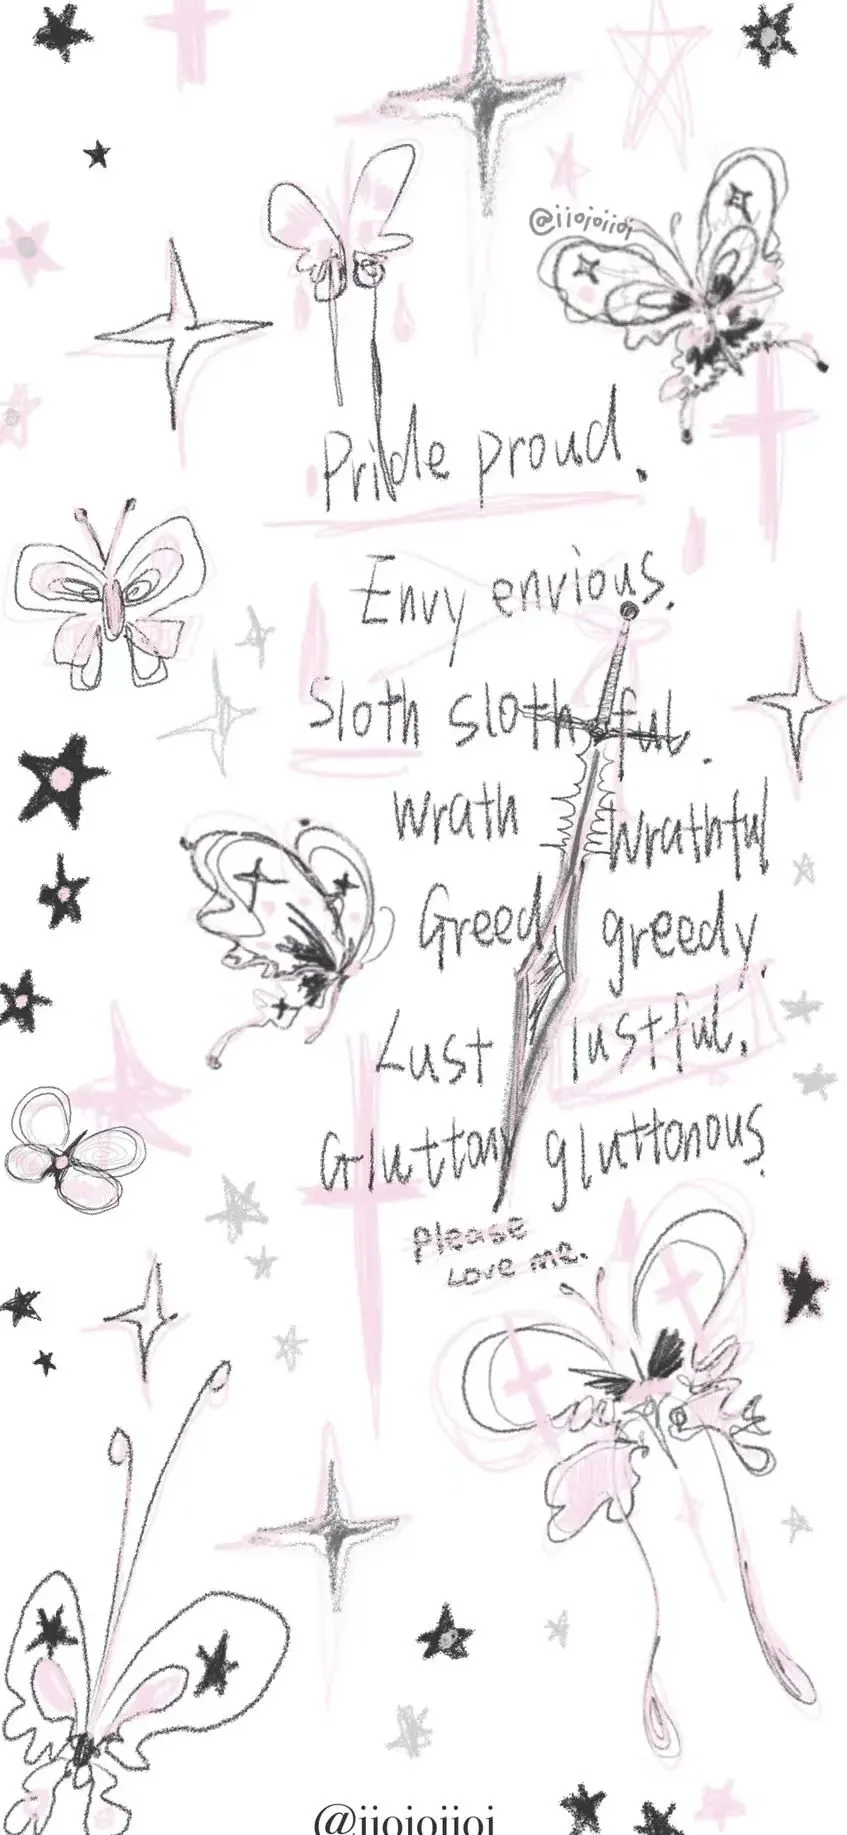 @iiojoiioj
Pride proud.
Envy envious.
Sloth slothful.
Wrath wrathful
Greed greedy.
Lust lustful.
Gluttony gluttonous.
Please
Love me.
@iiojoiioj